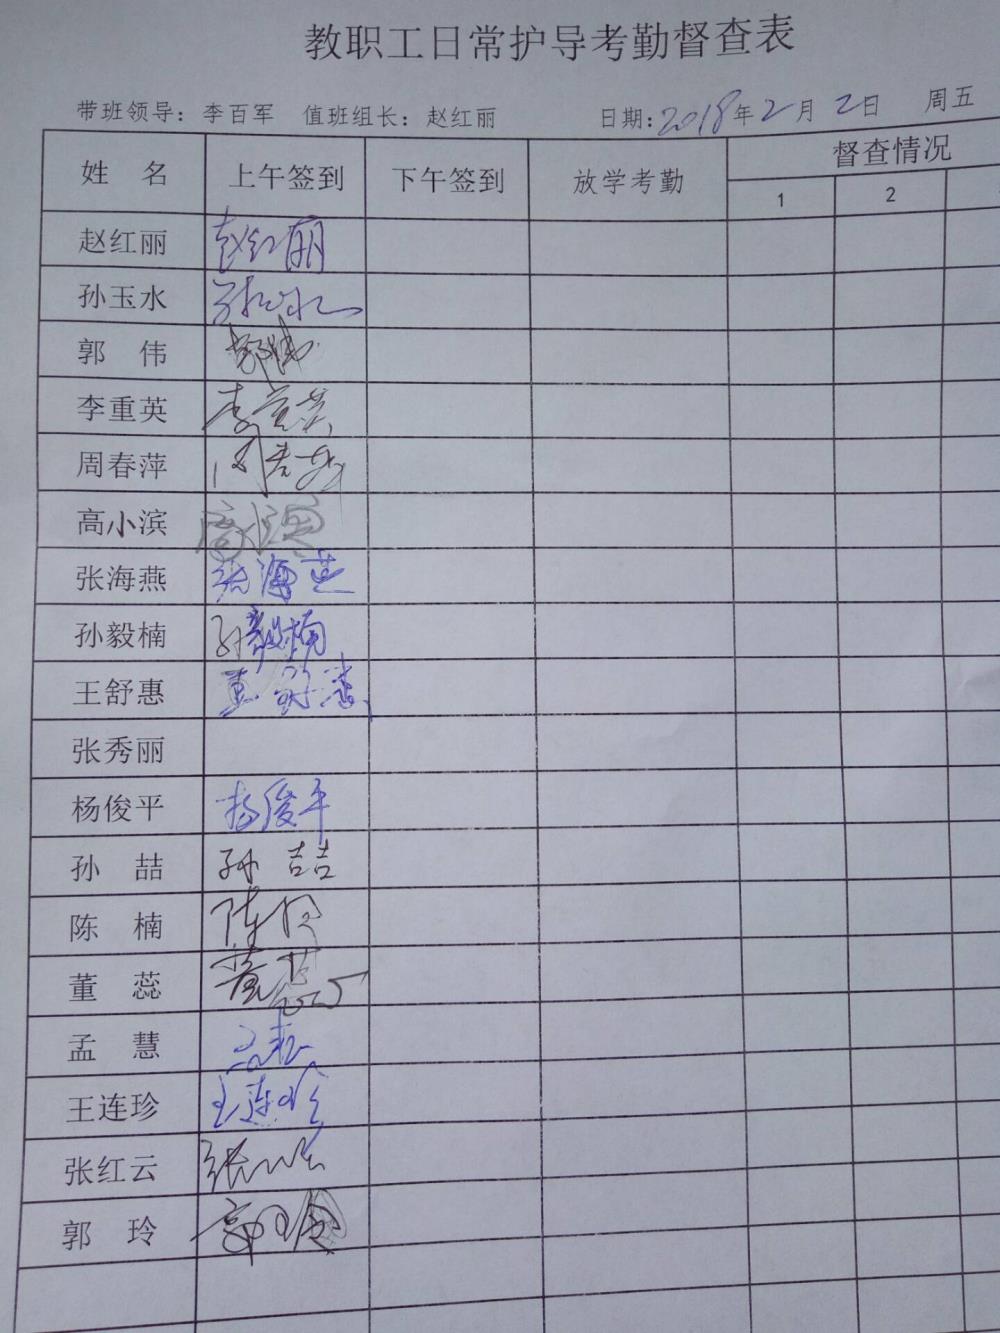 教职工日常护导考勤督查表
带班领导：李百军 值班组长：赵红丽 日期：2018年2月2日 周五
姓 名 上午签到 下午签到 放学考勤 督查情况
1 2
赵红丽 赵红丽
孙玉水 孙玉水
郭 伟 郭伟
李重英 李重英
周春萍 周春萍
高小滨 高小滨
张海燕 张海燕
孙毅楠 孙毅楠
王舒惠 王舒惠
张秀丽
杨俊平 杨俊平
孙 喆 孙喆
陈 楠 陈楠
董 蕊 董蕊
孟 慧 孟慧
王连珍 王连珍
张红云 张红云
郭 玲 郭玲